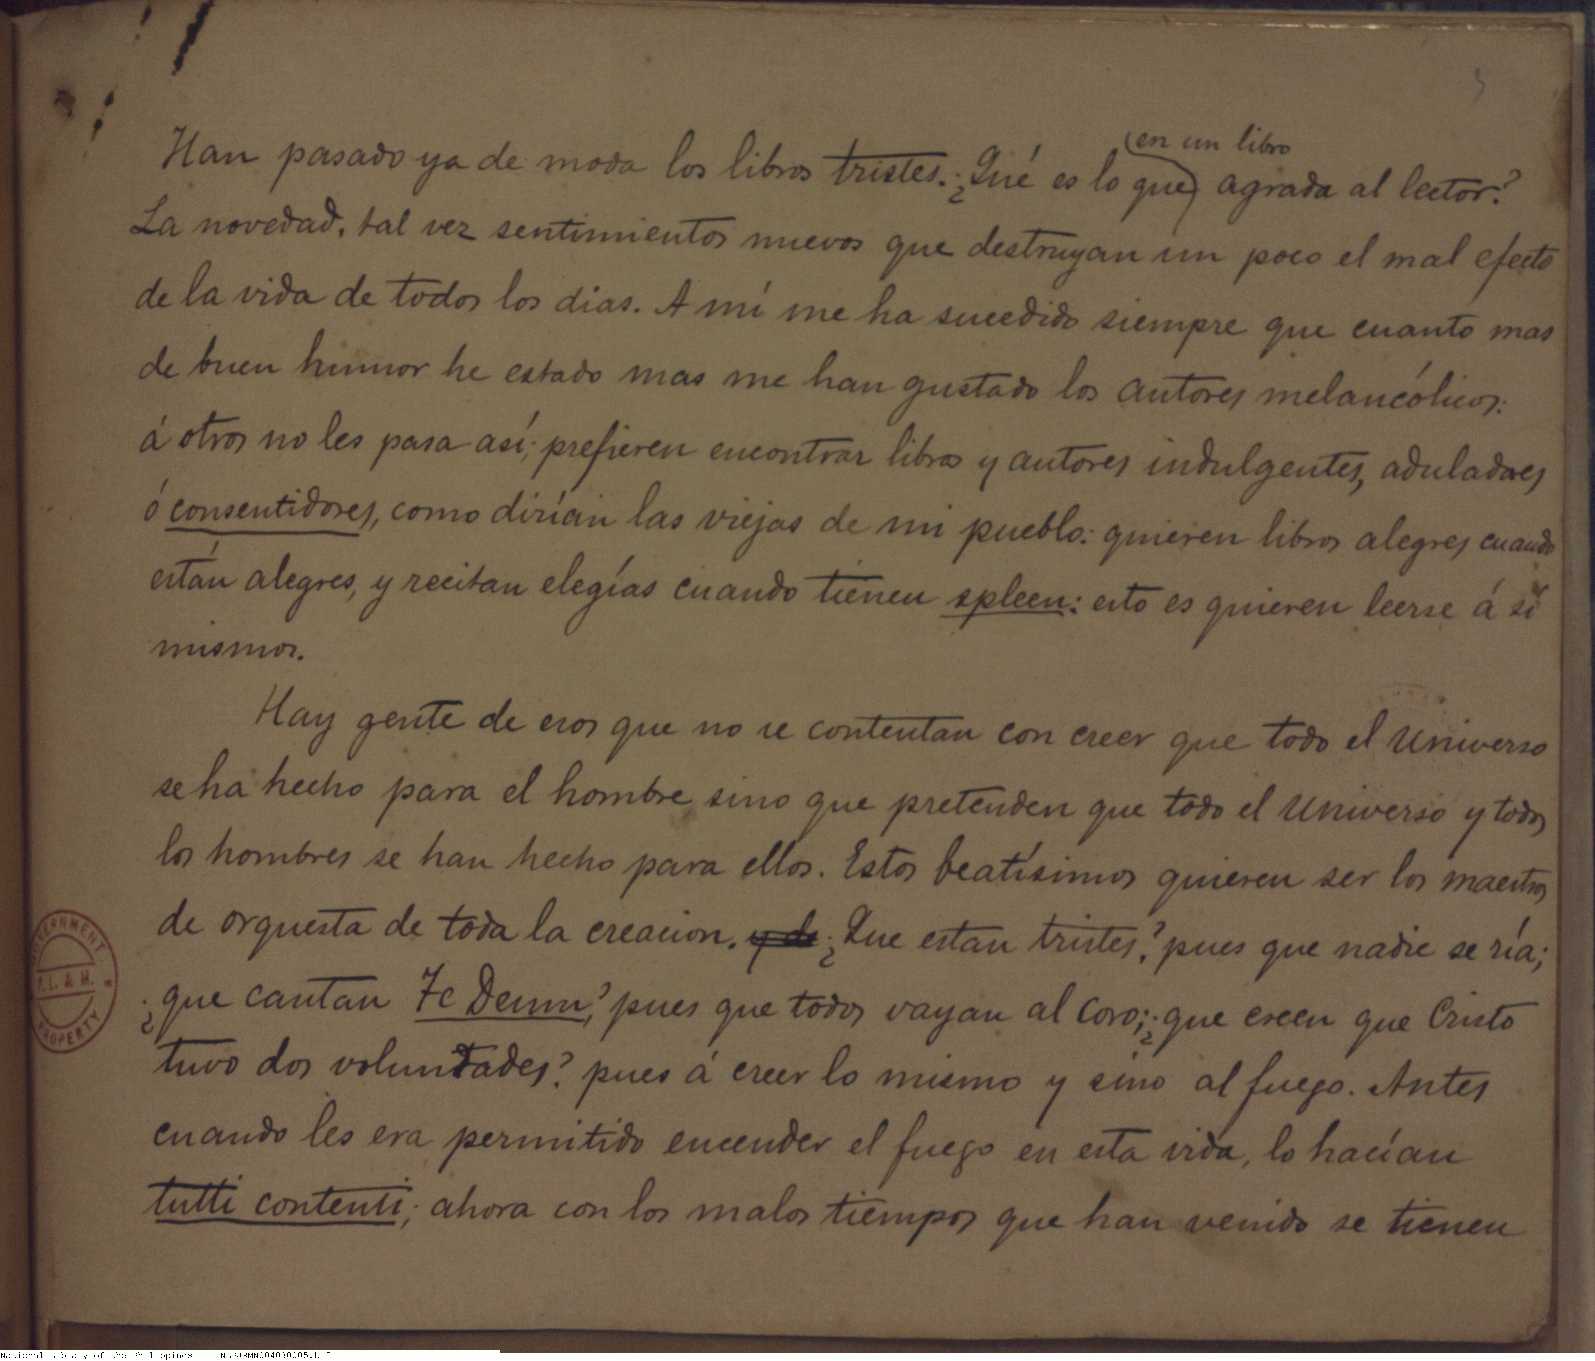 en un libro
Han pasado ya de moda los libros tristes. ¿Qué es lo que agrada al lector?
La novedad, tal vez sentimientos nuevos que destruyan un poco el mal efecto
de la vida de todos los dias. A mí me ha sucedido siempre que cuanto mas
de buen humor he estado mas me han gustado los autores melancólicos:
á otros no les pasa así; prefieren encontrar libros y autores indulgentes, aduladores
ó consentidores, como dirían las viejas de mi pueblo: quieren libros alegres cuando
están alegres, y recitan elegías cuando tienen spleen: esto es quieren leerse á sí
mismos.
Hay gente de esos que no se contentan con creer que todo el Universo
se ha hecho para el hombre sino que pretenden que todo el Universo y todos
los hombres se han hecho para ellos. Estos beatísimos quieren ser los maestros
de orquesta de toda la creacion. y de ¿Que estan tristes? pues que nadie se ría;
¿que cantan Te Deum? pues que todos vayan al coro; ¿que creen que Cristo
tuvo dos voluntades? pues á creer lo mismo y sino al fuego. Antes
cuando les era permitido encender el fuego en esta vida, lo hacían
tutti contenti; ahora con los malos tiempos que han venido se tienen
GOVERNMENT
P. L. & M.
PROPERTY
National Library of the Philippines